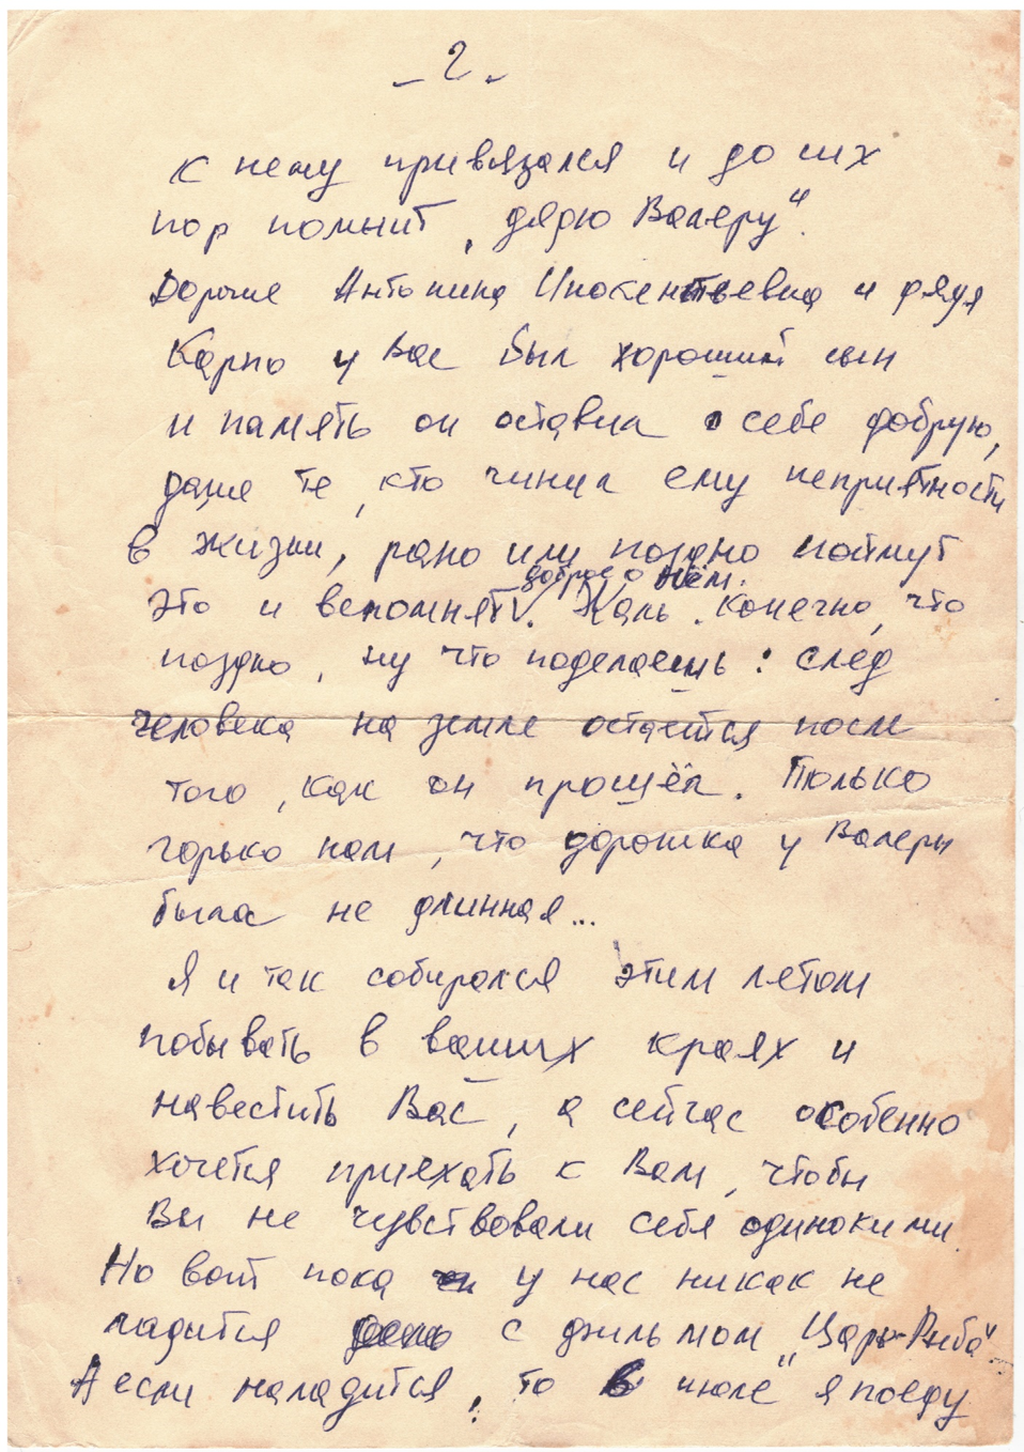 - 2 -
к нему привязался и до сих
пор помнит „дядю Валеру".
Дорогие Антонина Инокентьевна и дядя
Карпо у Вас был хороший сын
и память он оставил о себе добрую,
даже те, кто чинил ему неприятности
в жизни, рано или поздно поймут
доброе о нём.
это и вспомнят. Жаль, конечно, что
поздно, ну что поделаешь: след
человека на земле остаётся после
того, как он прошёл. Только
горько нам, что дорожка у Валеры
была не длинная...
Я и так собирался этим летом
побывать в ваших краях и
навестить Вас, а сейчас особенно
хочется приехать к Вам, чтобы
Вы не чувствовали себя одинокими.
Но вот пока у нас никак не
ладится с фильмом „Царь-Рыба"...
А если наладится, то в июле я поеду